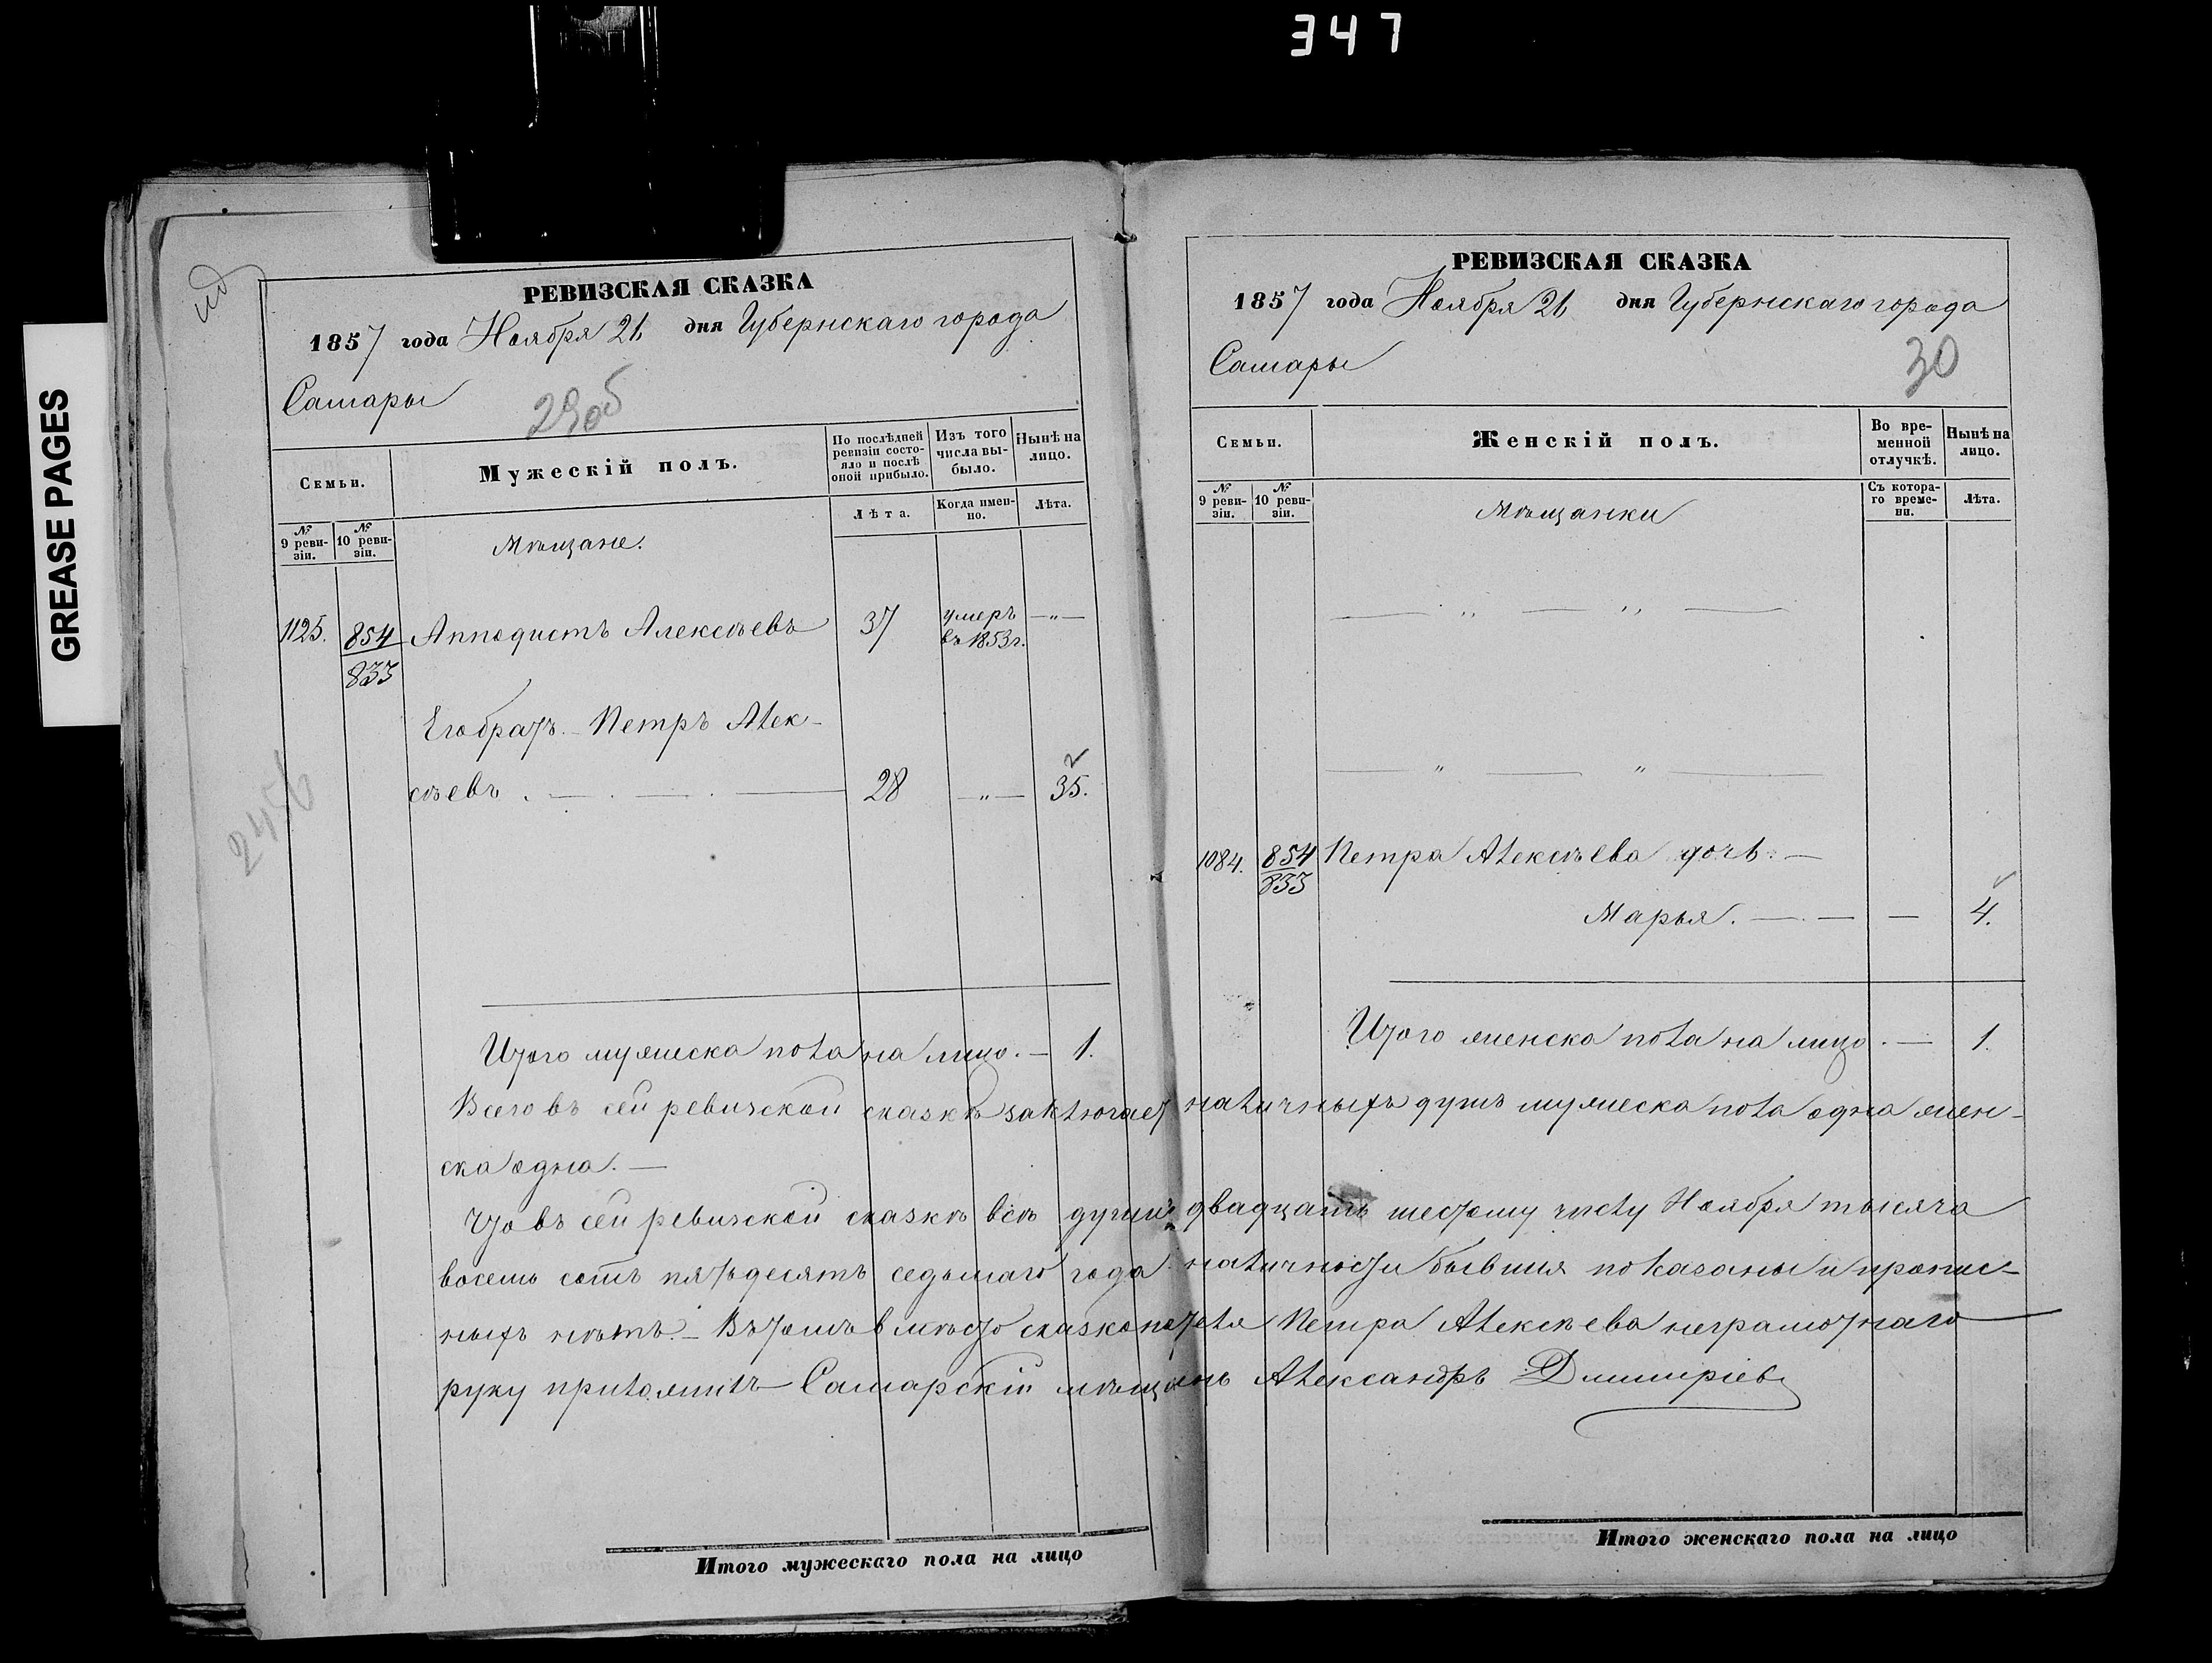 347
GREASE PAGES
РЕВИЗСКАЯ СКАЗКА
1857 года Ноября 21 дня Губернскаго города
Самары
29об
Семьи.
Мужескій полъ.
По послѣдней ревизіи состояло и послѣ оной прибыло.
Изъ того числа выбыло.
Нынѣ на лицо.
№ 9 ревизіи.
№ 10 ревизіи.
Лѣта.
Когда именно.
Лѣта.
Мѣщане.
1125. 854 Апподистъ Алексѣевъ 37 умеръ въ 1853г. —"—
833
Его братъ. Петръ Алек-
сѣевъ . — . — . — 28 —"— 35.
2456
Итого мужеска пола на лицо. — 1.
РЕВИЗСКАЯ СКАЗКА
1857 года Ноября 21 дня Губернскаго города
Самары
30
Семьи.
Женскій полъ.
Во временной отлучкѣ.
Нынѣ на лицо.
№ 9 ревизіи.
№ 10 ревизіи.
Съ котораго времени.
Лѣта.
Мѣщанки
— " — " —
— " — " —
1084. 854 Петра Алексѣева дочь: —
833
Марья. — . — — 4.
Итого женска пола на лицо. — 1.
Всего въ сей ревизской сказкѣ заключает наличныхъ душъ мужеска пола одна жен-
ска одна. —
Что въ сей ревизской сказкѣ всѣ души двадцать шестому числу Ноября тысяча
восемь сотъ пятьдесятъ седьмаго года наличности бывшия показаны и пропис-
ныхъ нѣтъ. — Въ томъ вмѣсто сказкоподателя Петра Алексѣева неграмотнаго
руку приложилъ Самарскій мѣщанинъ Александръ Дмитріев
Итого мужескаго пола на лицо
Итого женскаго пола на лицо